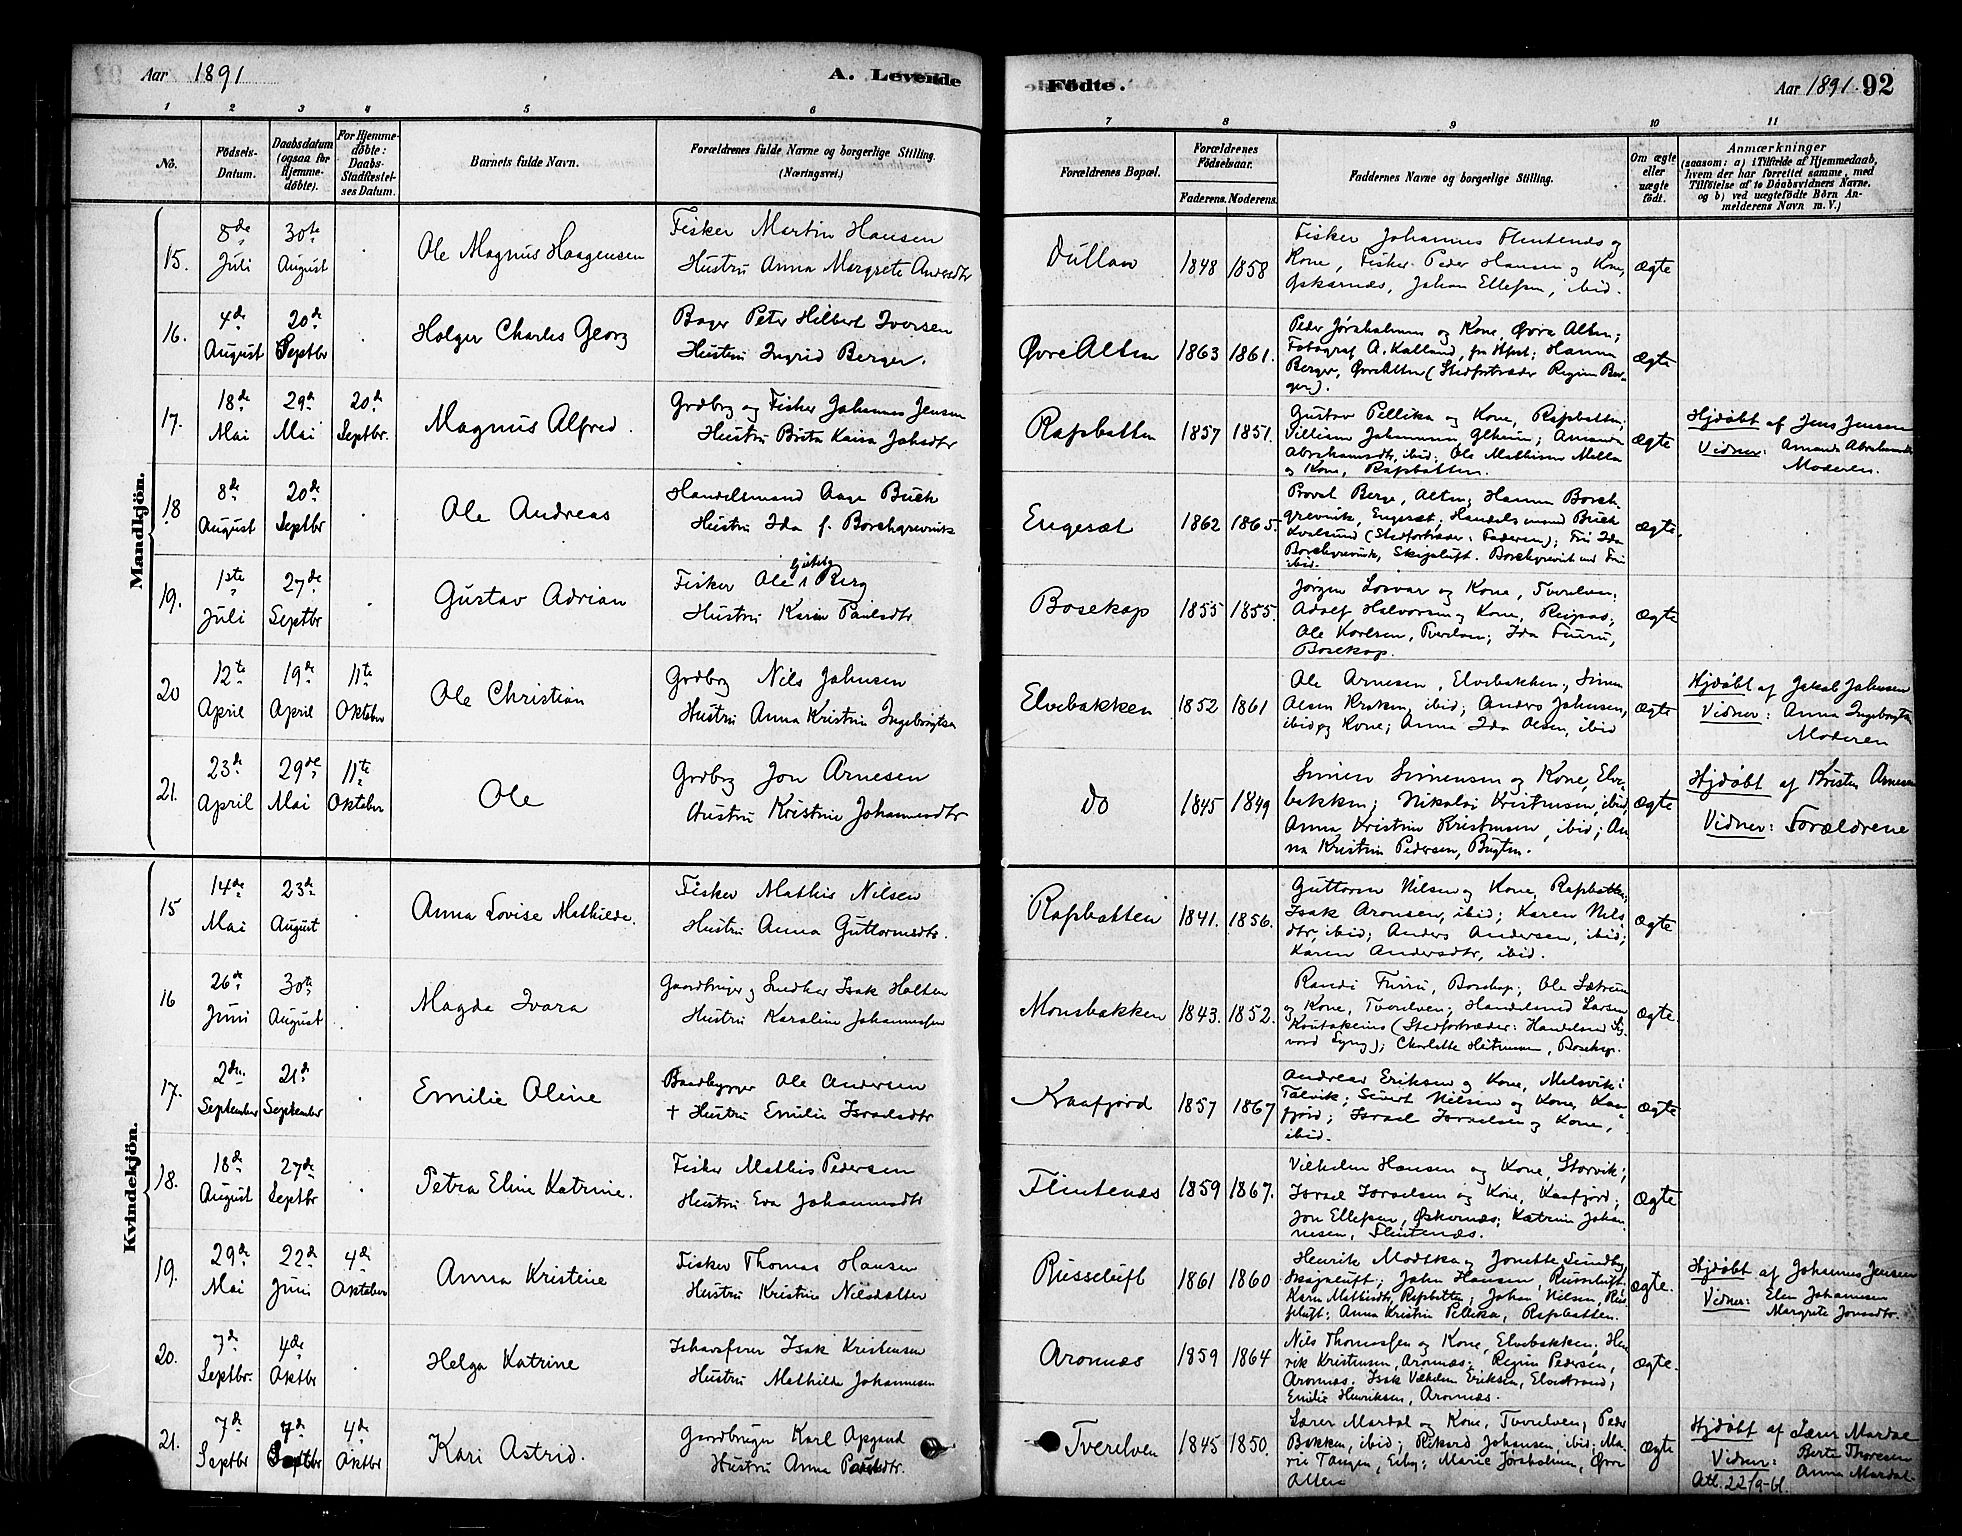 Aar 1891
A. Levende
Fødte.
Aar 1891. 92
1 2 3 4 5 6 7 8 9 10 11
No.
Fødsels-
Datum.
Daabsdatum
(ogsaa for
Hjemme-
døbte).
For Hjemme-
døbte:
Daabs-
Stadfæstel-
ses Datum.
Barnets fulde Navn.
Forældrenes fulde Navne og borgerlige Stilling.
(Næringsvei.)
Forældrenes Bopæl.
Forældrenes
Fødselsaar.
Faderens. Moderens.
Faddernes Navne og borgerlige Stilling.
Om ægte
eller
uægte
født.
Anmærkninger
(saasom: a) i Tilfælde af Hjemmedaab,
hvem der har forrettet samme, med
Tilføielse af to Daabsvidners Navne.
og b) ved uægtefødte Börn An-
melderens Navn m. V.)
Mandkjön.
15. 8de Juli 30te August
Ole Magnus Haagensen
Fisker Martin Hansen
Hustru Anna Margrete Andersdtr
1848 1858
Fisker Johannes Flintenæs og
Kone, Fisker Peder Hansen og Kone,
Johan Ellefsen, ibid.
ægte
16. 4de August 20de Septbr
Holger Charles Georg
Bager Peter Hilbert Iversen
Hustru Ingrid Berger.
Øvre Alten
1863 1861.
Peder Jørsholmen og Kone, Øvre Alten;
Fotograf A. Kalland, Hanna
Berger, Øvre Alten (Stedfortræder Regine Ber-
ger).
ægte
17. 18de Mai 29de Mai 20de Septbr.
Magnus Alfred.
Grdbrg og Fisker Johannes Jensen
Hustru Brita Kaisa Johsdtr
Rafsbotten
1857 1851.
Gustav Pellika og Kone, Rafsbotten;
Amanda
Abrahamsdtr, ibid; Ole Mathisen Mella
og Kone, Rafsbotten.
ægte
Hjdøbt af Jens Jensen
Vidner: Amanda Abrahamsdtr
Moderen.
18 8de August 20de Septbr
Ole Andreas
Handelsmand Aage Buch
Hustru Ida f. Borchgrevink
Engesæt
1862 1865.
Provst Berge, Alten; Hanna Borch-
grevink, Engesæt; Handelsmand Buch
Kvalsund (Stedfortræder: Faderen); Fru Ida
Borchgrevink, Borchgrevink und Fru
ibid.
ægte.
19. 1ste Juli 27de Septbr
Gustav Adrian
Fisker Ole Berg
Hustru Karen Paulsdtr
Bosekop
1855 1855.
Jørgen Losvar og Kone, Tverelven;
Adolf Halvorsen og Kone, Reipas;
Ole Karlsen, Tverelven; Ida Furu,
Bosekop.
ægte
20 12te April 19de April 11te Oktober
Ole Christian
Grdbrg Nils Johnsen
Hustru Anna Kristine Ingebrigtsen
Elvebakken
1852 1861
Ole Arnesen, Elvebakken; Simen
Olsen Kraken, ibid; Anders Johnsen,
ibid og Kone; Anna Ida Olsen, ibid
ægte
Hjdøbt af Jakob Johnsen
Vidner: Anna Ingebrigtsen
Moderen
21. 23de April 29de Mai 11te Oktober
Ole
Grdbrg Jon Arnesen
Hustru Kristine Johannesdtr
do
1845 1849
Simen Simensen og Kone, Elve-
bakken; Nikolai Kristensen, ibid,
Anna Kristine Kristensen, ibid; An-
na Kristine Pedersen, Bugten.
ægte
Hjdøbt af Kristen Arnesen
Vidner: Forældrene
Kvindekjön.
15 14de Mai 23de August
Anna Lovise Mathilde.
Fisker Mathis Nilsen
Hustru Anna Guttormsdtr.
Rafsbotten
1841. 1856.
Guttorm Nilsen og Kone, Rafsbotten;
Isak Aronsen, ibid; Karen Nils
dtr, ibid; Anders Andersen, ibid;
Karen Andersdtr, ibid.
ægte
16 26de Juni 30te August
Magda Ivara
Gaardbruger og Snedker Isak Holten
Hustru Karoline Johannessen
Monsbakken
1843. 1852.
Randi Furu, Bosekop; Ole Sætrum
og Kone, Tverelven; Handelsmd Larsen
Koutokeino (Stedfortræder: Handelsmd Sy-
vord Lyng); Charlotte Heitmann, Bosekop.
ægte.
17. 2den September 21de September
Emilie Oline
Baadbygger Ole Andersen
+ Hustru Emilie Israelsdtr
Kaafjord
1857 1867
Andreas Eriksen og Kone, Melsvik i
Talvik; Sivert Nilsen og Kone, Kaa-
fjord; Israel Israelsen og Kone,
ibid.
ægte
18. 18de August 27de Septbr
Petra Eline Katrine.
Fisker Mathis Pedersen
Hustru Eva Johannesdtr
Flintenæs
1859 1867.
Vilhelm Hansen og Kone, Storvik;
Israel Israelsen og Kone, Kaafjord;
Jon Ellefsen, Øskernæs; Katrine Johan-
nesen, Flintenæs.
ægte
19. 29de Mai 22de Juni 4de Oktober
Anna Kristine
Fisker Thomas Hansen
Hustru Kristine Nilsdatter
Russeluft
1861 1860
Henrik Modtka og Jonette Sundby,
Skipsluft; John Hansen, Russeluft;
Karen Mathisdtr, Rafsbotten; Johan Nilsen, Rus-
seluft; Anna Kristine Pellika, Rafsbotten.
ægte.
Hjdøbt af Johannes Jensen
Vidner: Elen Johannesen
Margrete Jonsdtr.
20. 7de Septbr. 4de Oktbr
Helga Katrine
Isak Kristensen
Hustru Mathilde Johannesen
Aronnæs
1859 1864
Nils Thomassen og Kone, Elvebakken; Hen-
rik Kristensen, Aronnæs; Regine Pedersen,
Aronnæs. Isak Vilhelm Eriksen, Elvestrand;
Emilie Henriksen, Aronnæs.
ægte.
21. 7de Septbr 7de Septbr 4de Oktbr
Kari Astrid.
Gaardbruger Karl Opgaard
Hustru Anna Paulsdtr.
Tverelven
1845 1850.
Lærer Mardal og Kone, Tverelven; Peder
Bakken, ibid; Rikard Johansen, ibid; Ma-
rie Tangen, Eiby; Marie Jørsholmen, Øvre
Alten
ægte
Hjdøbt af Lærer Mardal
Vidner: Berte Thoresen
Anna Mardal.
Att. 22/9-61.